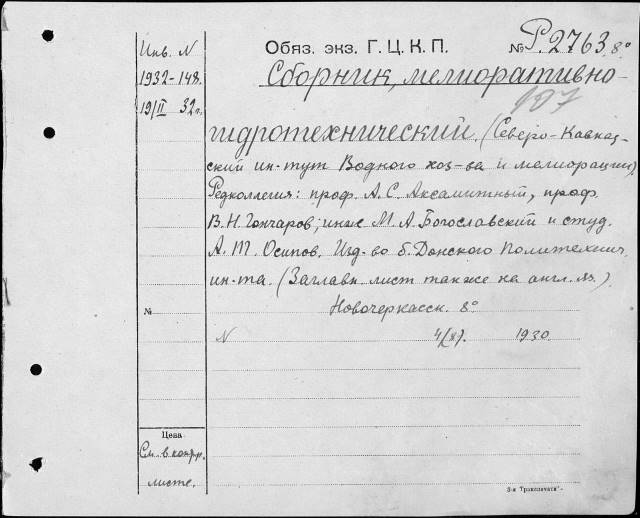 Инв. N
1932-148.
19/II 32г.
Обяз. экз. Г. Ц. К. П. № Р.2763.8°
Сборник, мелиоративно-
107
гидротехнический. (Северо-Кавказ-
ский ин-тут Водного хоз-ва и мелиорации)
Редколлегия: проф. А. С. Аксамитный, проф.
В. Н. Гончаров, инж. М. А. Богославский и студ.
А. Т. Осипов. Изд-во б. Донского Политехнич.
ин-та. (Заглавн. лист также на англ. яз.).
Новочеркасск. 8°
№
N 4/(87). 1930.
Цена
См. в
листе.
3-я "Транспечати".